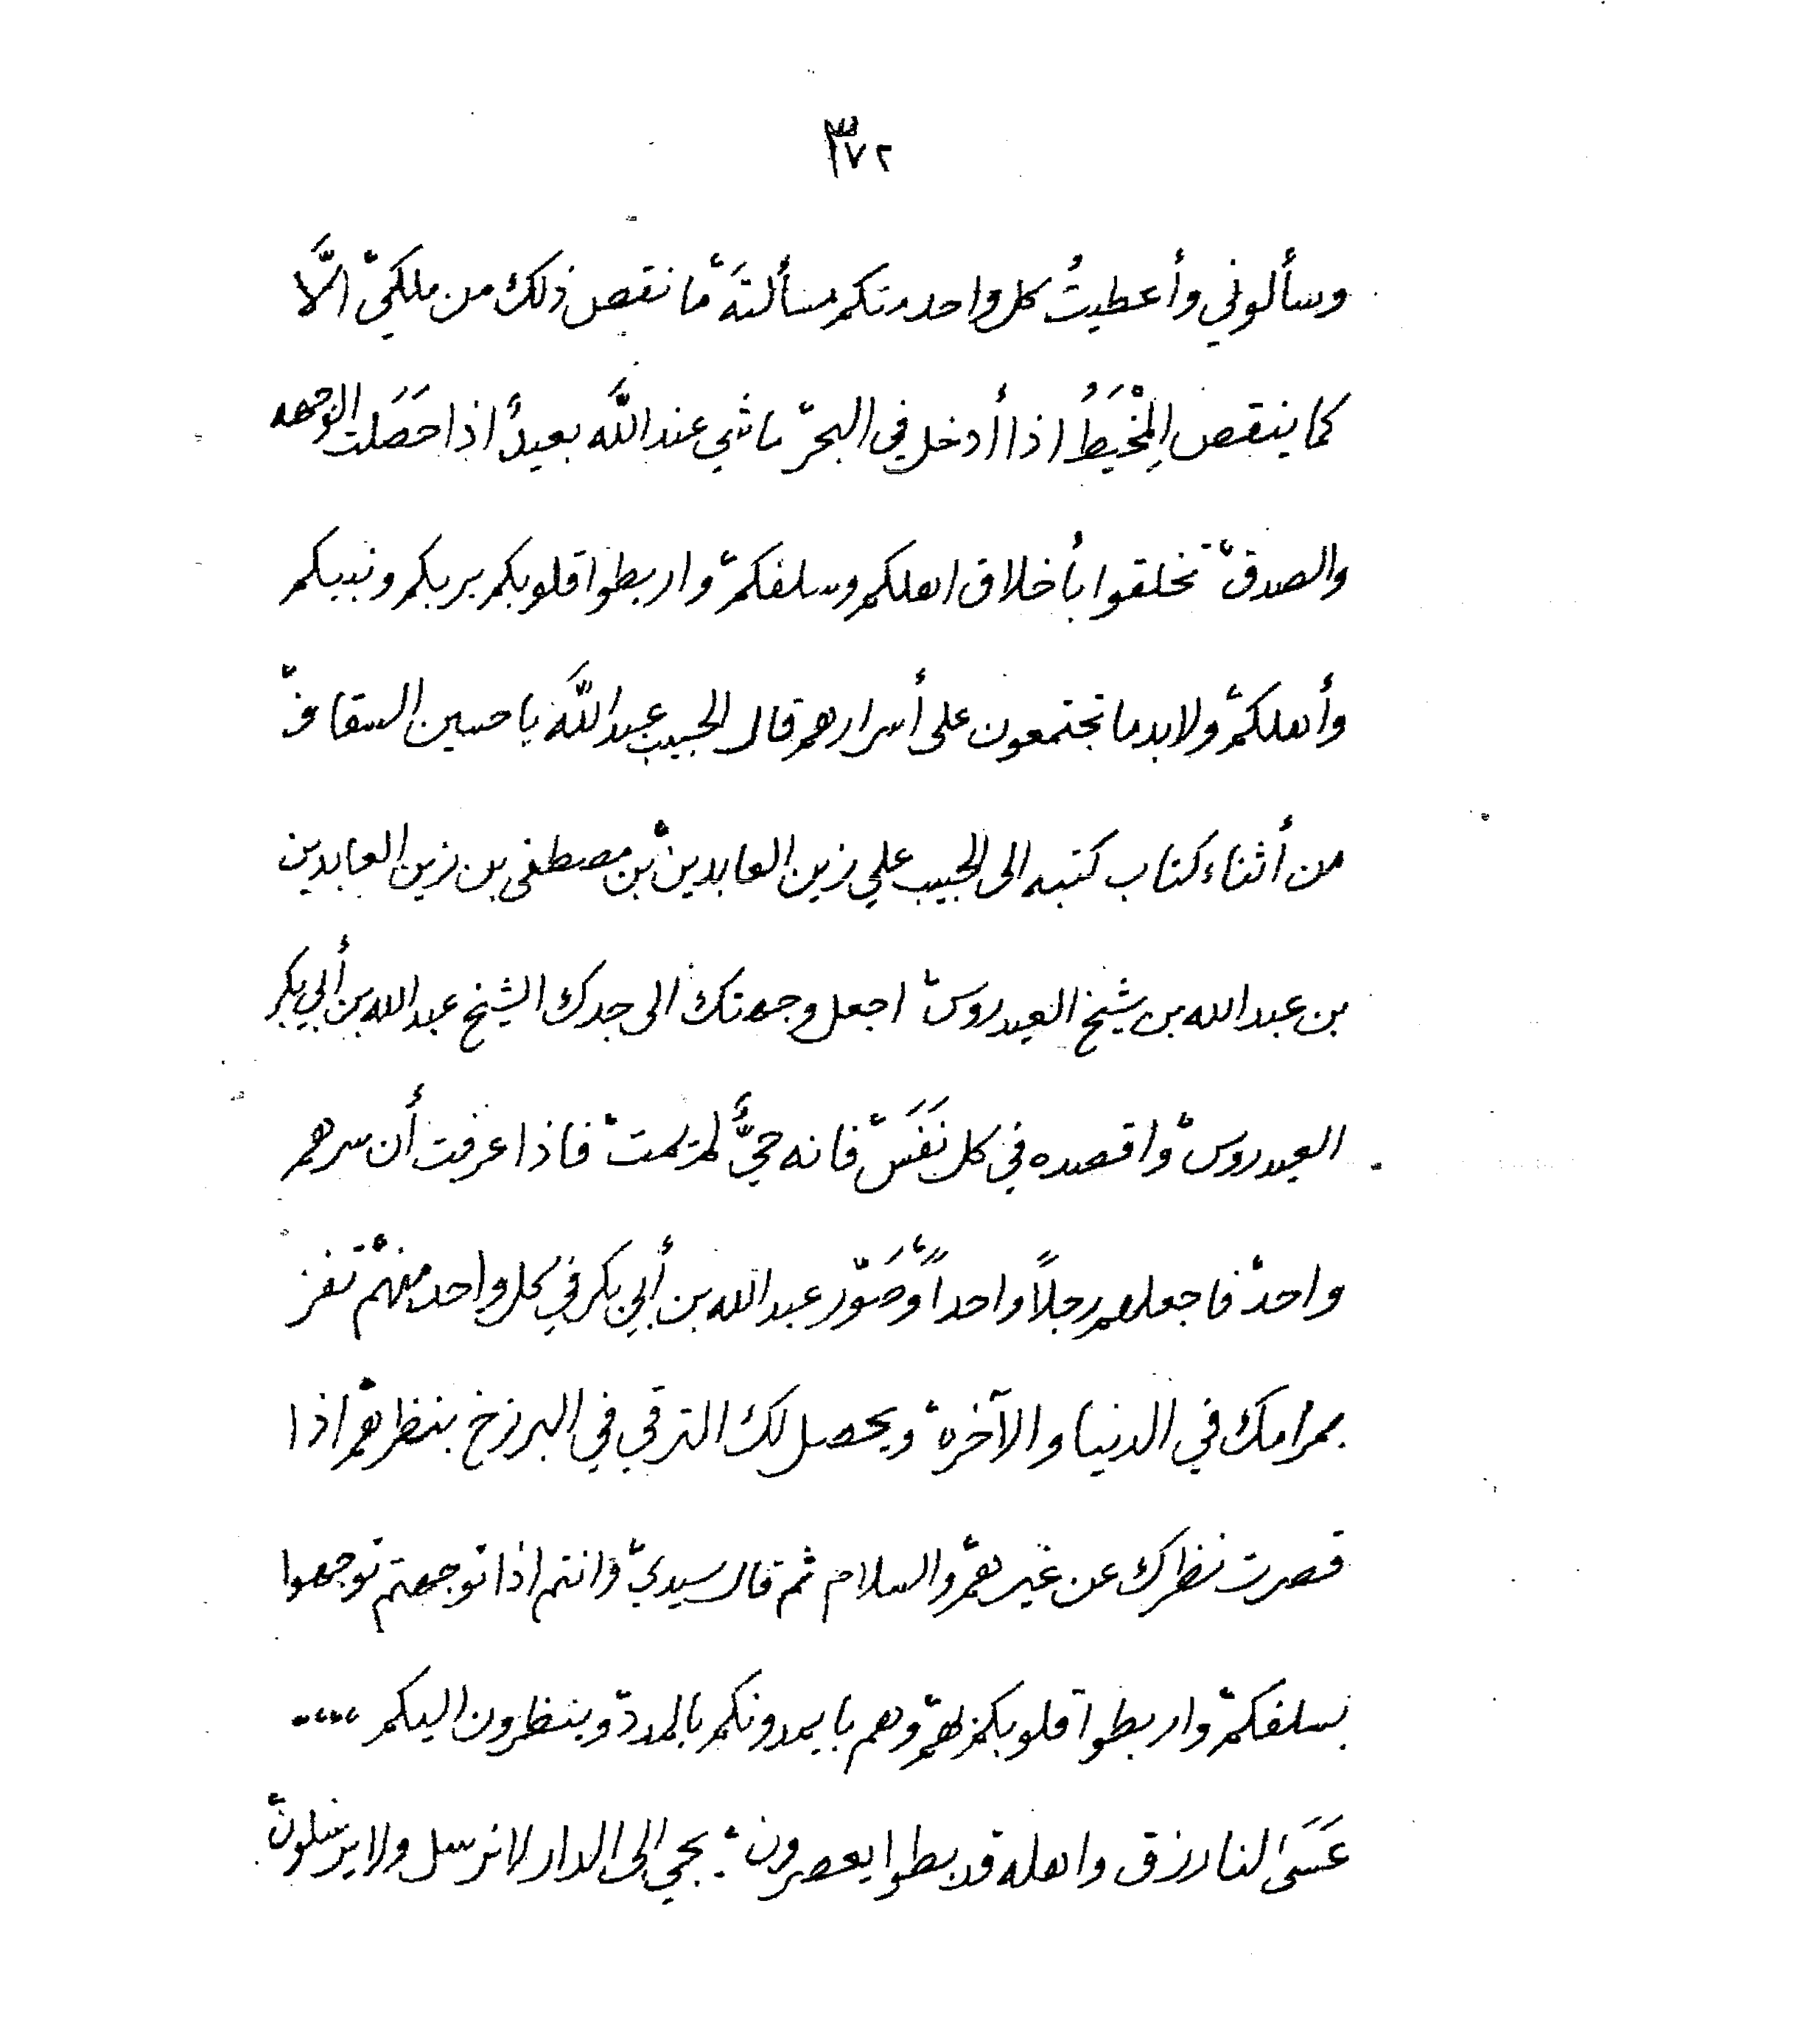 ٣٧٢
وسألوني وأعطيتُ كل واحد منكم مسألتَه، ما نقص ذلك من ملكي، الَّا
كما ينقص المِخْيَطُ اذا أدخل في البحر، ما شي عند اللَّه بعيدٌ اذا حَصَلت الوجهه
والصدق، تخلقوا بأخلاق اهلكم وسلفكم، واربطوا قلوبكم بربكم ونبيكم
وأهلكم، ولابد ما تجتمعون على أسرارهم قال الحبيب عبد اللَّه با حسين السقاف،
من أثناء كتاب كتبه الى الحبيب علي زين العابدين بن مصطفى بن زين العابدين
بن عبد الله بن شيخ العيدروس، اجعل وجهتك الى جدك الشيخ عبد الله بن أبي بكر
العيدروس، واقصده في كل نَفَس، فانه حيٌّ لم يمت، فاذا عرفت أن سرهم
واحد، فاجعلهم رجلاً واحداً، وصَوّر عبد الله بن أبي بكر في كل واحد منهم، تفز
بمرامك في الدنيا والآخرة، ويحصل لك الترقي في البرزخ بنظرهم، اذا
قصرت نظرك عن غيرهم، والسلام ثم قال سيدي، وانتم اذا توجهتم توجهوا
بسلفكم، واربطوا قلوبكم بهم، وهم بايمدونكم بالمدد، وينظرون اليكم ....
عَسَى لنا رزق واهله قد بطوا يعصرون ؛ يجي الى الدار لا نرسل ولا يرسلون،